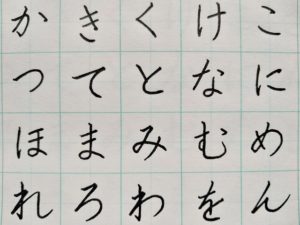 かきくけこ
つてとなに
ほまみむめ
れろわをん